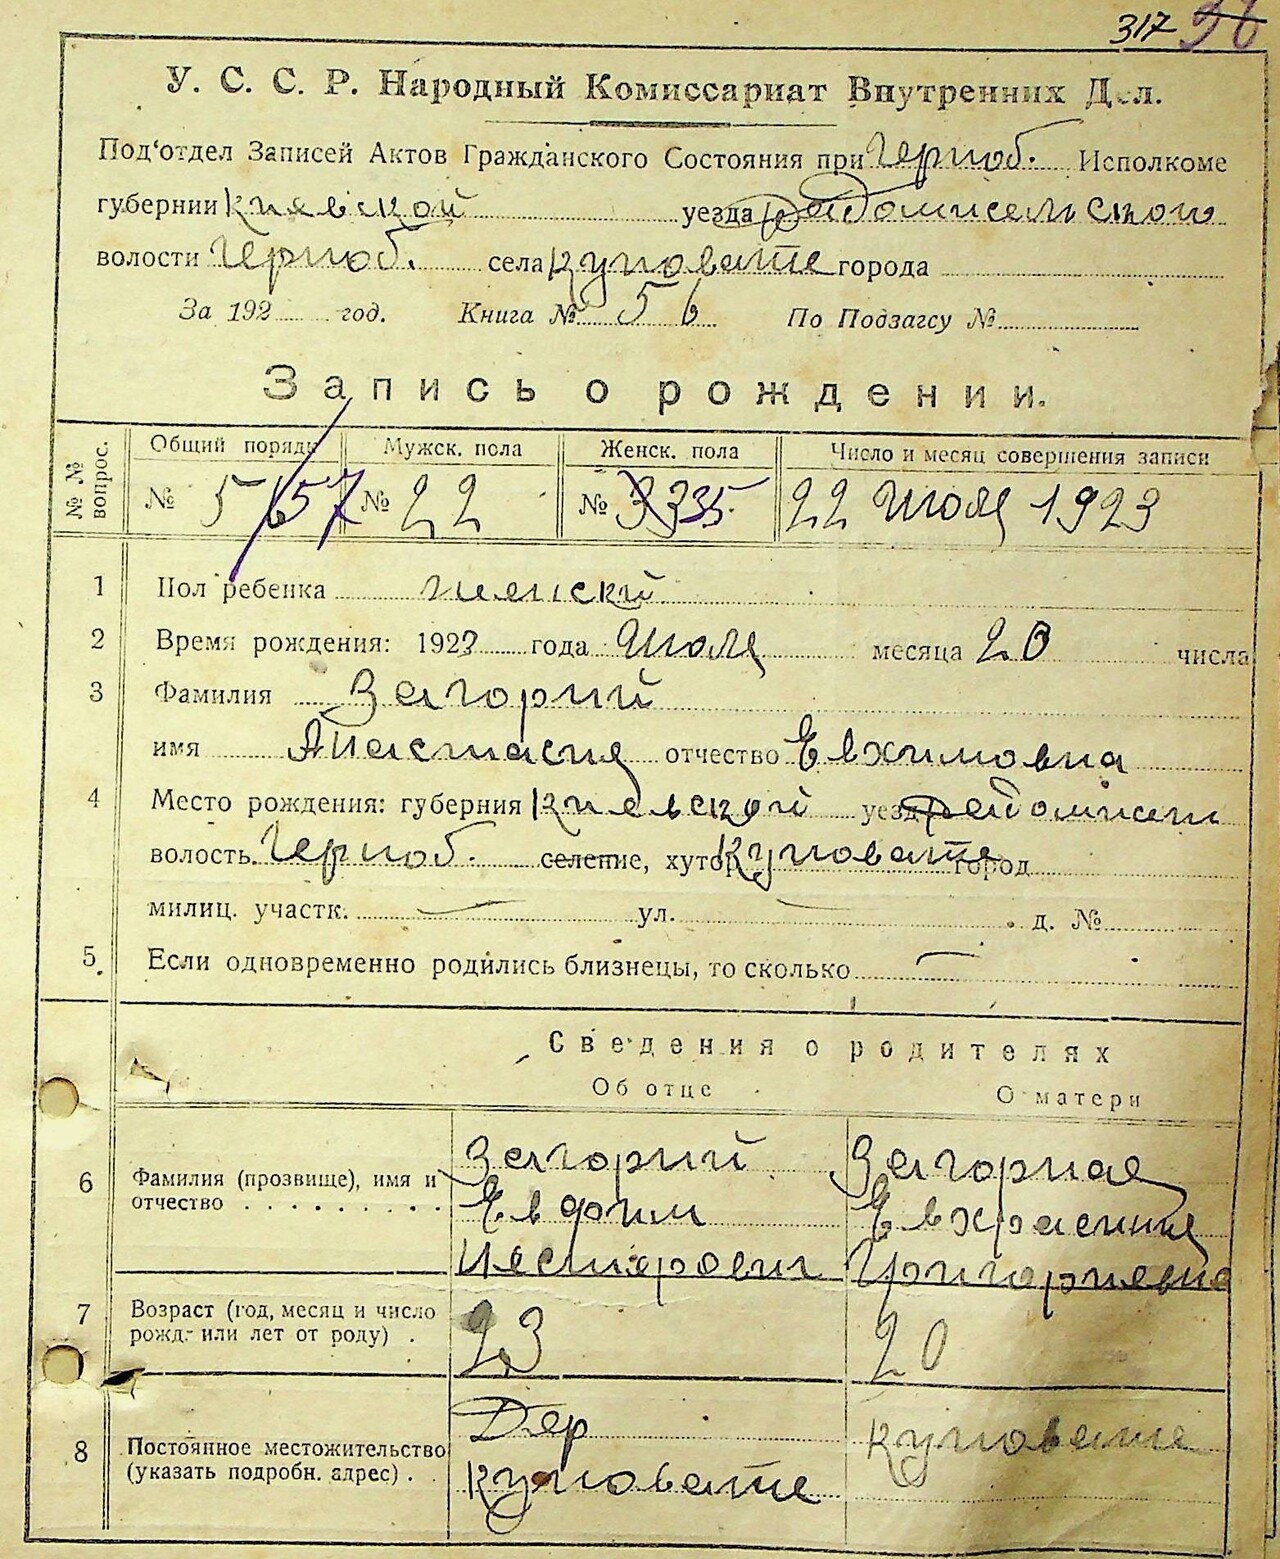 317 36
У. С. С. Р. Народный Комиссариат Внутренних Дел.
Под‘отдел Записей Актов Гражданского Состояния при Черноб. Исполкоме
губернии Киевской уезда Радомисельского
волости Черноб. села Куповате города
За 192 год. Книга № 56 По Подзагсу №
Запись о рождении.
№ № вопрос. Общий поряди Мужск. пола Женск. пола Число и месяц совершения записи
№ 56 57 № 22 № 33 35 22 Июля 1923
1 Пол ребенка женский
2 Время рождения: 1923 года Июля месяца 20 числа
3 Фамилия Загорий
имя Анастасия отчество Евхимовна
4 Место рождения: губерния Киевской уезд Радомисл
волость. Черноб. селение, хутор Куповате город
милиц. участк. — ул. — д. №
5. Если одновременно родились близнецы, то сколько —
Сведения о родителях
Об отце О матери
6 Фамилия (прозвище), имя и отчество Загорий Евфим Нестерович Загорная Евхрасиния Григориевна
7 Возраст (год, месяц и число рожд. или лет от роду) . 23 20
8 Постоянное местожительство (указать подробн. адрес) . Дер Куповате Куповате